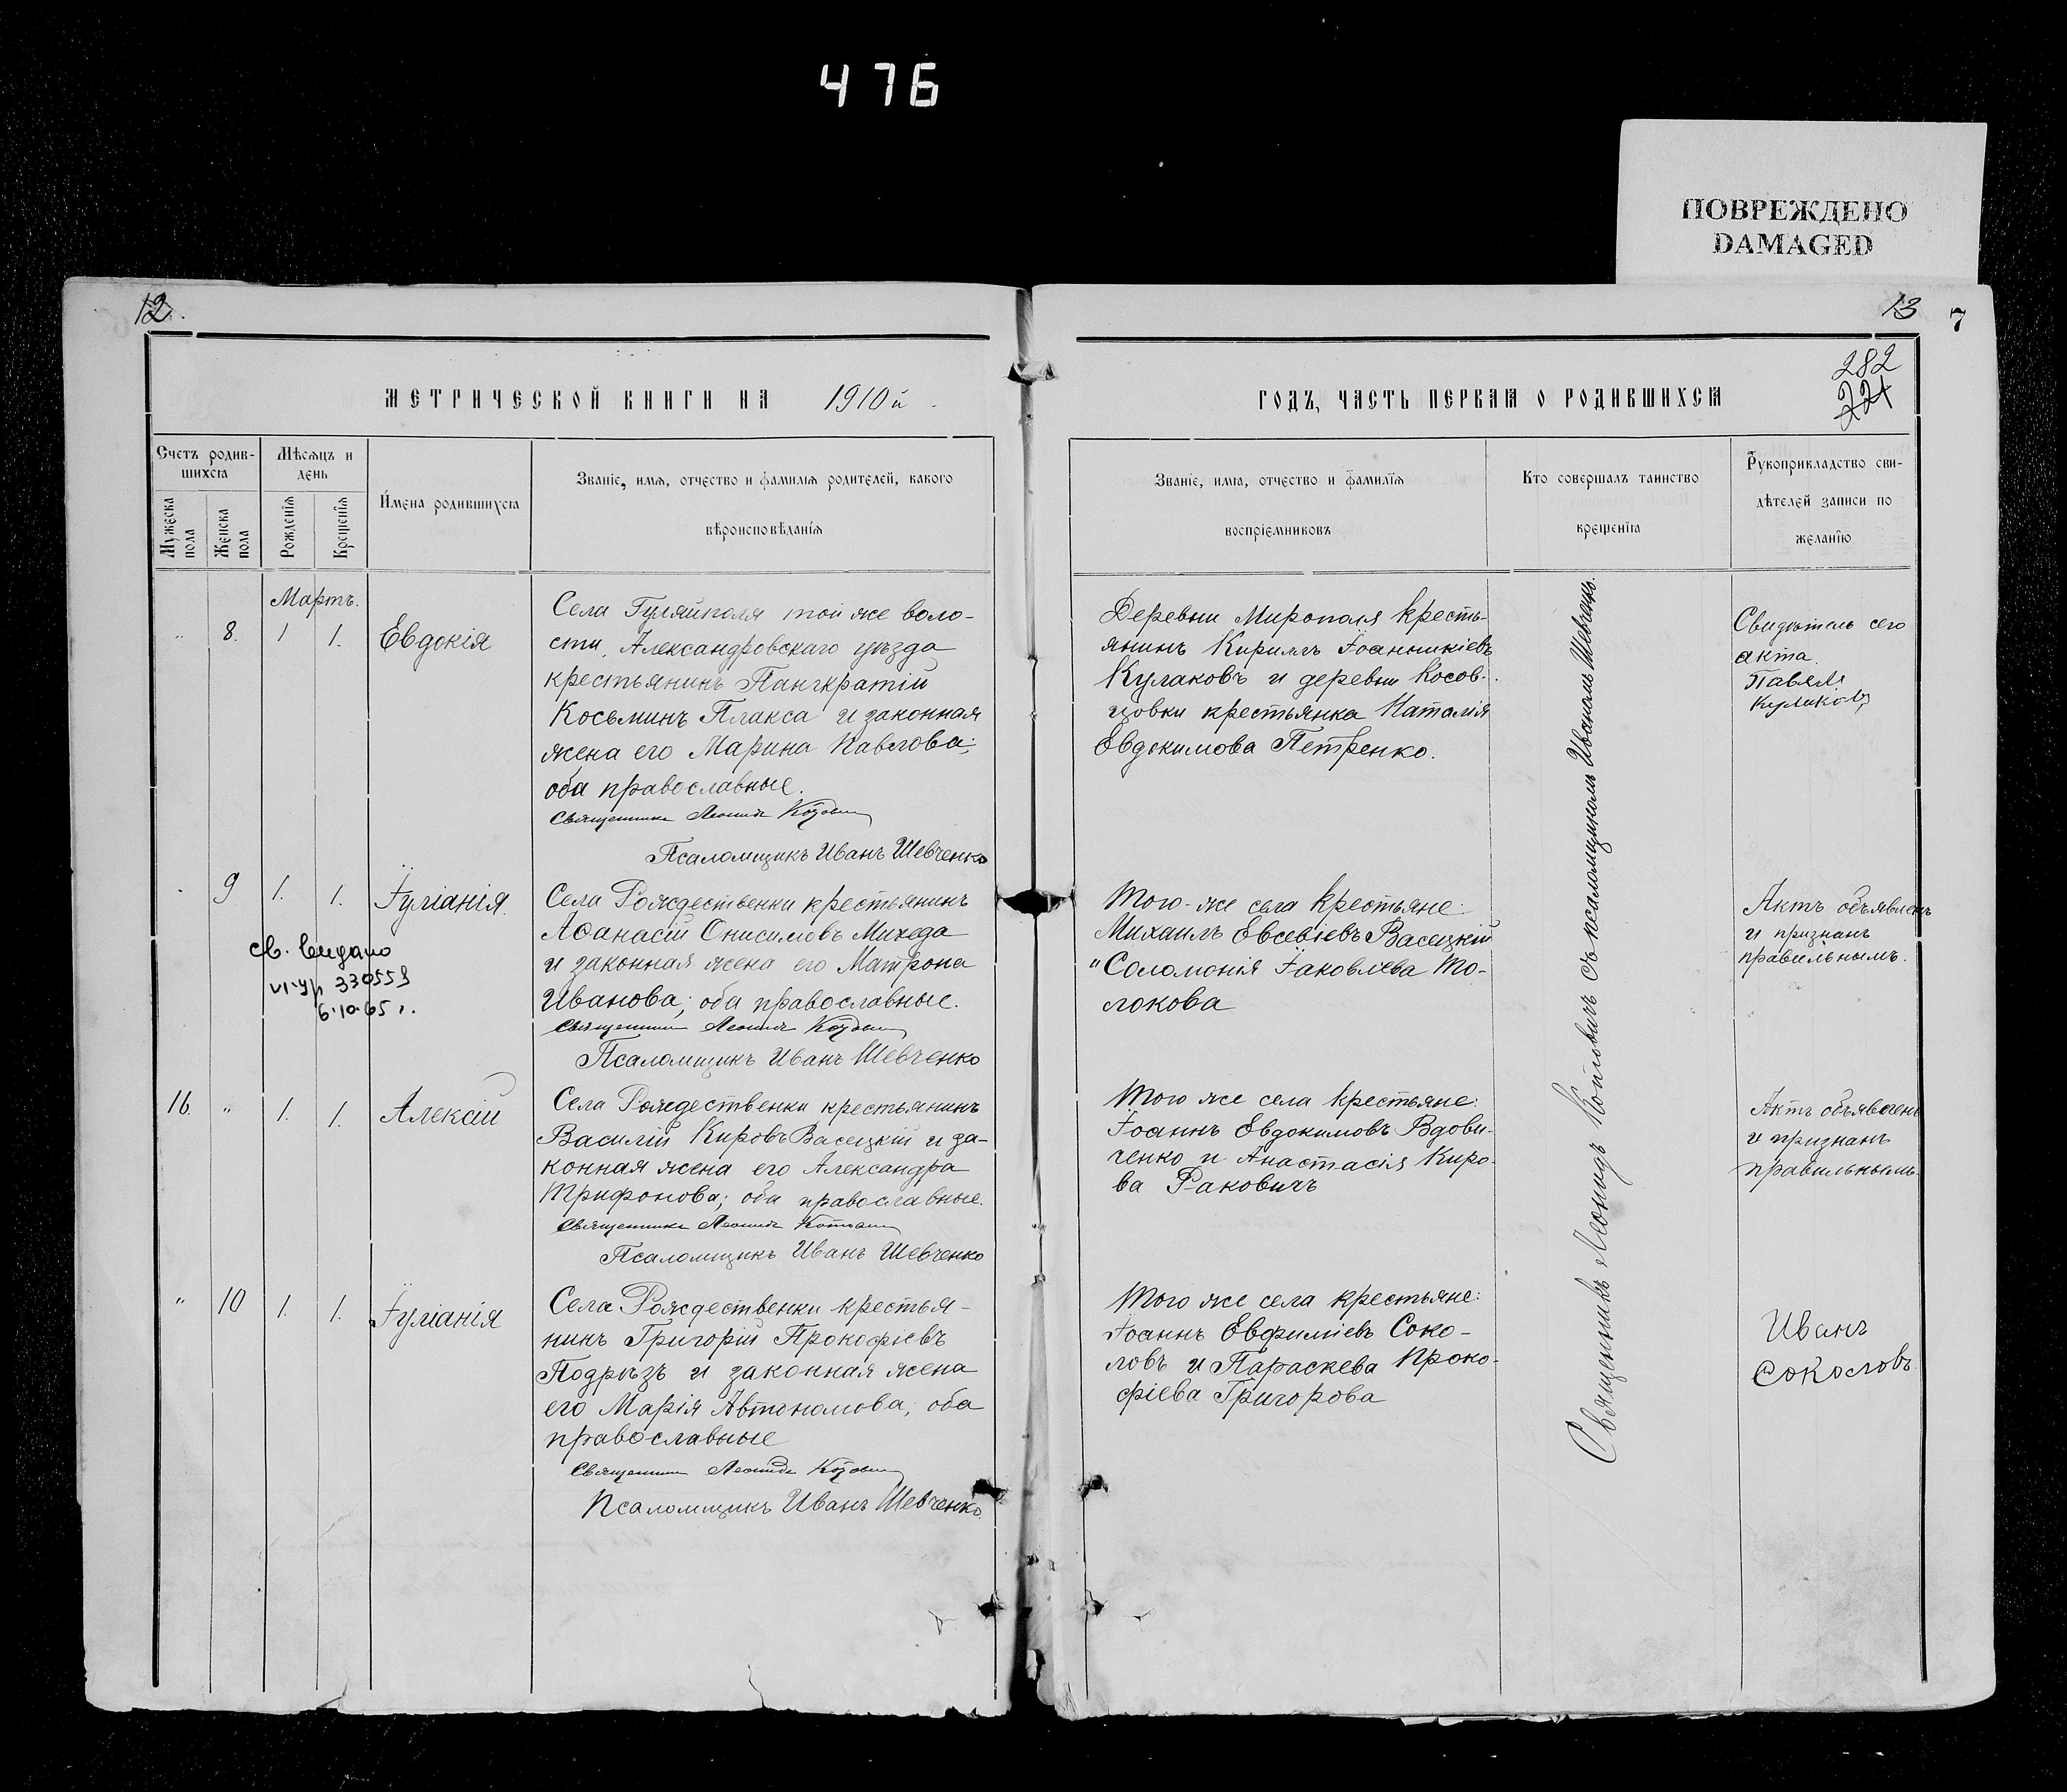 476
ПОВРЕЖДЕНО
DAMAGED
12.
МЕТРИЧЕСКОЙ КНИГИ НА 1910й
Счетъ родив-
шихся
Мужеска
пола
Женска
пола
Мѣсяцъ и
день
Рожденія
Крещенія
Имена родившихся
Званіе, имя, отчество и фамилія родителей, какого
вѣроисповѣданія
Мартъ.
" 8. 1 1. Евдокія
Села Гуляйполя той же воло-
сти, Александровскаго уѣзда
крестьянинъ Пангкратій
Косьминъ Плакса и законная
жена его Марина Павлова;
оба православные.
Священникъ Леонидъ
Псаломщикъ Иванъ Шевченко
9 1. 1. Іуліанія.
св. видано
VI-УР 330559
6.10.65 г.
Села Рождественки крестьянинъ
Аѳанасій Онисимовъ Михеда
и законная жена его Матрона
Иванова; оба православные.
Священникъ Леонидъ
Псаломщикъ Иванъ Шевченко
16. " 1. 1. Алексій
Села Рождественки крестьянинъ
Василій Кировъ Васецкій и за-
конная жена его Александра
Трифонова; оба православные.
Священникъ Леонидъ
Псаломщикъ Иванъ Шевченко
" 10 1. 1. Іуліанія
Села Рождественки крестья-
нинъ Григорій Прокофіевъ
Подрѣзъ и законная жена
его Марія Автономова; оба
православные
Священникъ Леонидъ
Псаломщикъ Иванъ Шевченко.
13
7
282
221
ГОДЪ, ЧАСТЬ ПЕРВАЯ О РОДИВШИХСЯ
Званіе, имя, отчество и фамилія
воспріемниковъ
Кто совершалъ таинство
крещенія
Рукоприкладство сви-
дѣтелей записи по
желанію
Деревни Мирополя кресть-
янинъ Кириллъ Іоанникіевъ
Кулаковъ и деревни Косов-
цовки крестьянка Наталія
Евдокимова Петренко.
Свидѣтель сего
акта
Павелъ
Куликовъ
Того-же села крестьяне:
Михаилъ Евсевіевъ Васецкій
" Соломонія Іаковлева То-
локова
Актъ объявленъ
и признанъ
правильнымъ.
Того же села крестьяне:
Іоаннъ Евдокимовъ Вдови-
ченко и Анастасія Киро-
ва Раковичъ
Актъ объявленъ
и признанъ
правильнымъ.
Того же села крестьяне:
Іоаннъ Евфиміевъ Соко-
ловъ и Параскева Проко-
фіева Григорова
Иванъ
Соколовъ
Священникъ Леонидъ Котловичъ съ псаломщикомъ Иваномъ Шевченк.